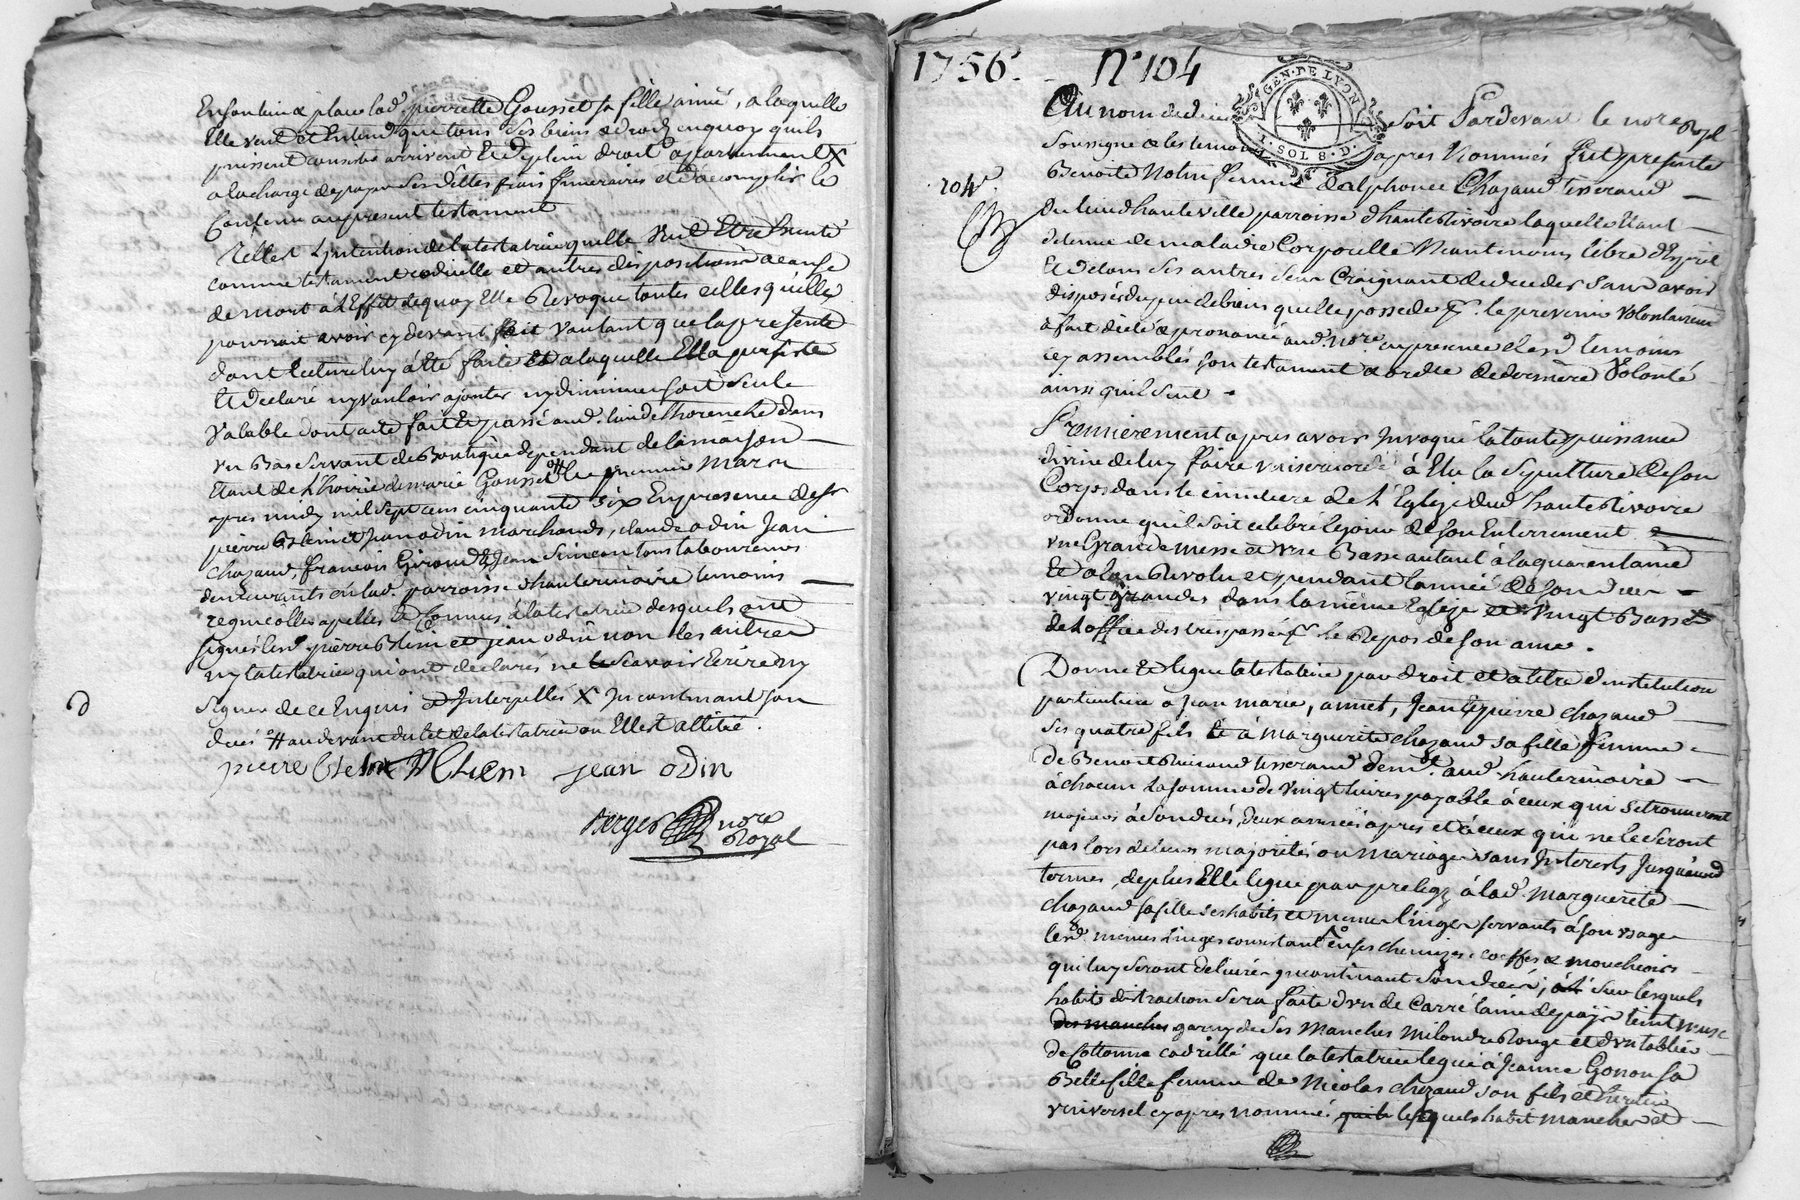 En son lieu & place lad. pierrette Gousset sa fille ainée, a laquelle
Elle veut et Entend que tous ses biens & droits en quoy qu'ils
puissent consister arrivent Et de plein droit appartiennent X
a la charge de payer ses dettes frais funeraires et d'acomplir le
Contenu au present testament
Telle est L'intention de la testatrice qu'elle veut Etre Executé
comme testament codicille et autres dispositions a cause
de mort à l'Effet de quoy Elle Revoque toutes celles qu'elle
pourroit avoir cy devant fait voulant que la presente
dont lecture luy à Eté faite Et a laquelle Ella persiste
Et declaré n'y vouloir ajouter ny diminuer soit seule
Valable dont acte fait & passé aud. lieu de Thorenche dans
un Bas servant de Boutique dependant de la maison
Etant de l'hoirie de marie Gousset # le premier Mars
apres midy mil sept cens cinquante six En presence de sr
pierre Blein et jean odin marchands, claude odin Jean
chazaud, francois Giroud & Jean Simeon tous laboureurs
demeurants en lad. parroisse d'hauterivoire temoins
requis olles apellés Et Connus à la testatrice desquels ont
signés lesd. pierre Blein et jean odin non les autres
ny la testatrice qui ont declarés ne le scavoir Ecrire ny
signer de ce Enquis et Interpellés X Incontinant son
decés # au devant du lit de la testatrice ou Elle est alittée.
pierre Blein jean odin
Berger nore
Royal
1756. N° 104
GEN. DE LYON
1. SOL 8. D.
104e.
Au nom de dieu soit Pardevant le nore Royl
soussigné & les temoins apres Nommés fut presente
Benoite Notre femme d'alphonce Chazaud tisserand
du lieu d'hauteville parroisse d'hauterivoire laquelle Etant
detenue de maladie Corporelle Neantmoins libre d'Esprit
Et de tous ses autres sens Craignant de deceder sans avoir
disposés du peu de biens qu'elle possede pr. le prevenir volontairemt
à fait dicté & prononcé aud. nore en presence desd. temoins
icy assemblés son testament & ordre de derniere Volonté
ainsi quil suit.
Premierement apres avoir Invoqué la toute puissance
divine de luy faire misericorde à Elu la sepulture de son
Corps dans le cimetiere de L'Eglize dud. hauterivoire
ordonne qu'il soit celebré le jour de son Enterrement
une Grande messe et une Basse autant à la quarantaine
Et a l'an Revolu et pendant l'année de son deces
vingt grandes dans la même Eglize et vingt Basses
de l'office des trespassés pr. le Repos de son ame.
Donne & legue la testatrice par droit et a titre d'institution
particuliere a Jean marie, annet, Jean & pierre chazaud
ses quatre fils et à marguerite chazaud sa fille femme
de Benoit Guiraud tisserand demt. aud. hauterivoire
à chacun la somme de vingt livres payable à ceux qui se trouveront
majeurs à son deces, deux années apres et à ceux qui ne le seront
pas lors de leurs majorités ou mariages sans Interests jusqu'auxd.
termes, de plus Elle legue par prelegs à lad. Marguerite
chazaud sa fille ses habits et menus linges servants à son usage
lesd. menus Linges consistant en ses chemizes coeffes & mouchoirs
qui luy seront delivrés incontinant son deces; sur lesquels
habits distraction sera faite d'un de Carré laine de païs teint musc
des manches garny de ses Manches Milondre Rouge et d'un tablier
de Cottonne cadrillé que la testatrice legue à Jeanne Gonon sa
Belle fille femme de Nicolas chazaud son fils et heritier
universel cy apres nommé. lesquels habit manches et